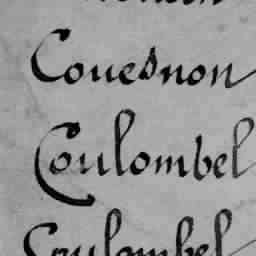 Couesnon
Coulombel
Coulombel